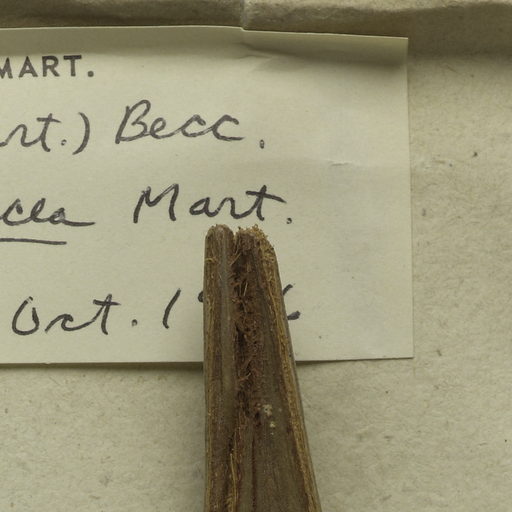 MART.
rt.) Becc.
cea Mart.
Oct. 1